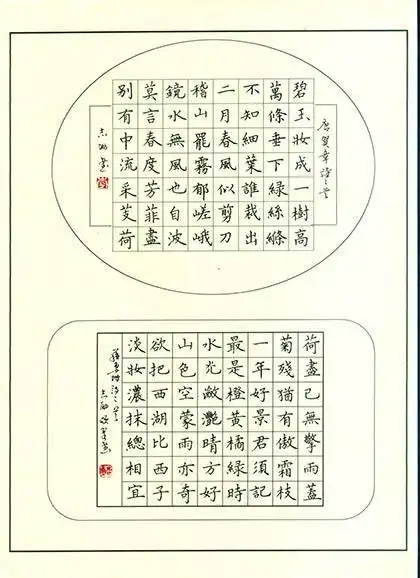 唐賀章詩二首
碧玉妝成一樹高
萬條垂下綠絲縧
不知細葉誰裁出
二月春風似剪刀
稽山罷霧郁嵯峨
鏡水無風也自波
莫言春度芳菲盡
別有中流采芰荷
荷盡已無擎雨蓋
菊殘猶有傲霜枝
一年好景君須記
最是橙黃橘綠時
水光瀲灩晴方好
山色空蒙雨亦奇
欲把西湖比西子
淡妝濃抹總相宜
蘇東坡詩二首